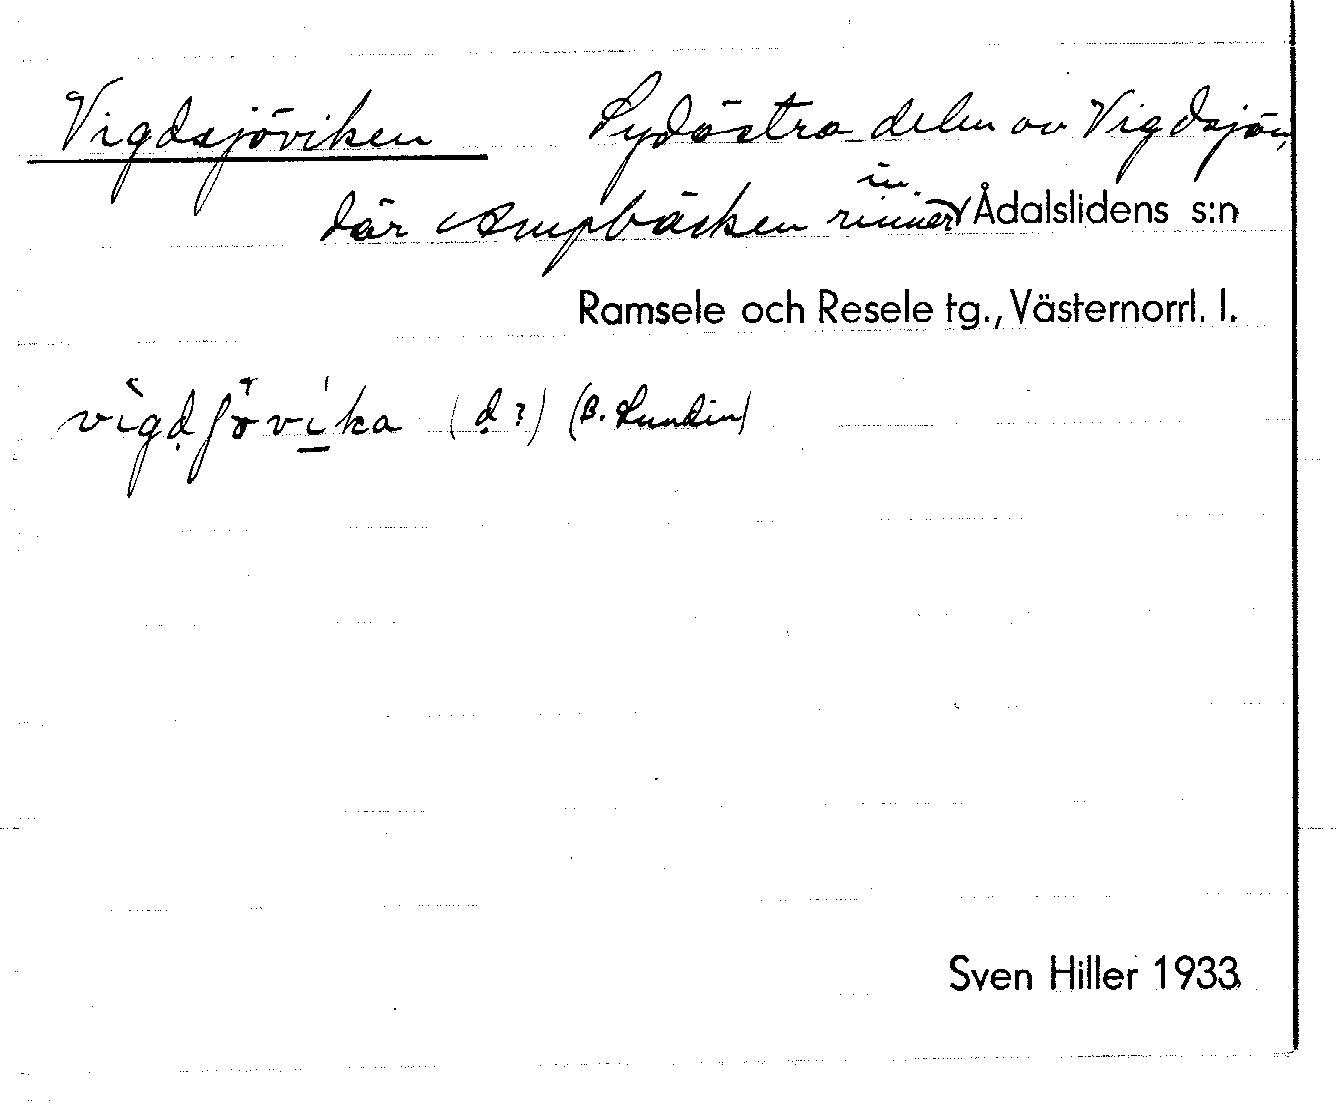 Vigdsjöviken Sydöstra delen av Vigdsjön,
där Ampbäcken rinner in.
Ådalslidens s:n
Ramsele och Resele tg., Västernorrl. l.
(d̩?) (B. Lundin)
Sven Hiller 1933